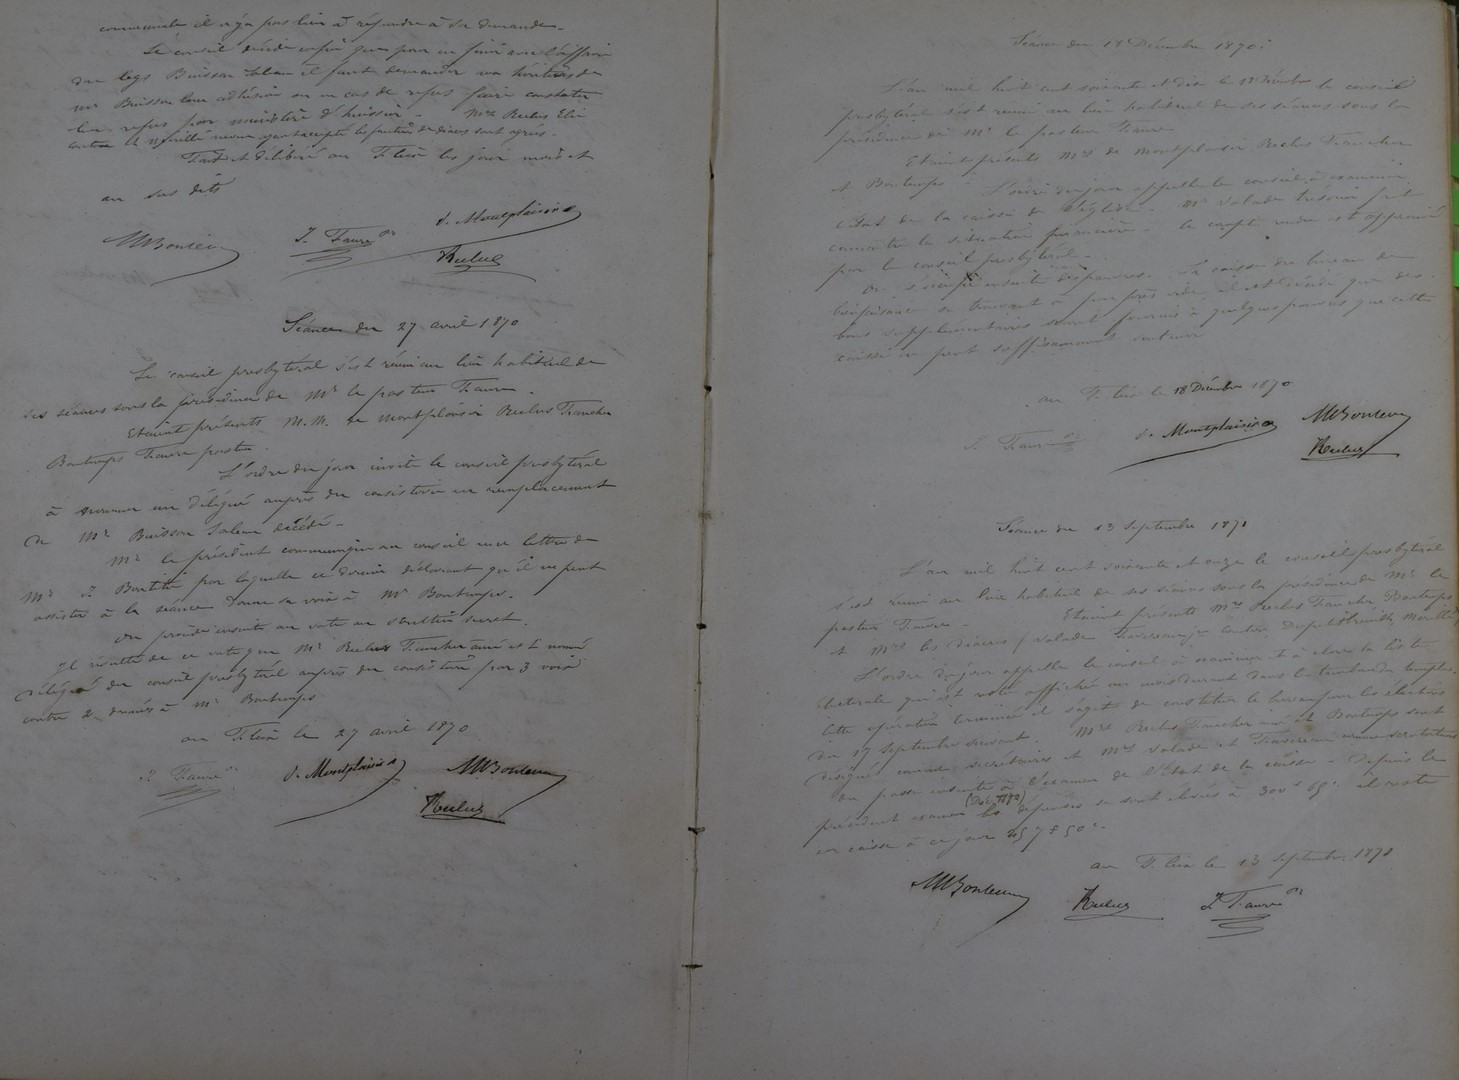 commune il n'y a pas lieu à répondre à sa demande.
Le conseil décide enfin que pour en finir avec l'affaire
du legs Buisson Salem il faut demander aux héritiers de
mr Buisson leur adhésion ou en cas de refus faire constater
leur refus par ministère d'huissier. Mrs Reclus Elie
ayant accepté les fonctions de diacres sont agréés.
Fait et délibéré au Fleix les jour mois et
an sus dits
MBontems J. Faure pr d. Montplaisir
Reclus
Séance du 27 avril 1870
Le conseil presbytéral s'est réuni au lieu habituel de
ses séances sous la présidence de Mr le pasteur Faure.
Etaient présents M.M. de Montplaisir Reclus Faucher
Bontemps Faure pasteur.
L'ordre du jour invite le conseil presbytéral
à nommer un délégué auprès du consistoire en remplacement
de Mr Buisson Salem décédé.
Mr le président communique au conseil une lettre de
Mr J. par laquelle ce dernier déclarant qu'il ne peut
assister à la séance donne sa voix à Mr Bontemps.
On procède ensuite au vote au scrutin secret.
Il résulte de ce vote que Mr Reclus Faucher ainé est nommé
délégué du conseil presbytéral auprès du consistoire par 3 voix
contre 2 données à Mr Bontemps
au Fleix le 27 avril 1870
J. Faure pr d. Montplaisir MBontems
Reclus
Séance du 18 Décembre 1870.
L'an mil huit cent soixante et dix le 18 Décembre le conseil
presbytéral s'est réuni au lieu habituel de ses séances sous la
présidence de Mr le pasteur Faure
Etaient présents Mrs de Montplaisir Reclus Faucher
et Bontemps. L'ordre du jour appelle le conseil à examiner
l'état de la caisse de l'église. Mr Valade trésorier fait
connaître la situation financière. Le compte rendu est approuvé
par le conseil presbytéral.
On s'occupe ensuite des pauvres. La caisse du bureau de
bienfaisance se trouvant à peu près vide, il est décidé que des
bons supplémentaires seront fournis à quelques pauvres que cette
caisse ne peut suffisamment soutenir
au Fleix le 18 Décembre 1870
J. Faure pr d. Montplaisir MBontems
Reclus
Séance du 13 Septembre 1871
L'an mil huit cent soixante et onze le conseil presbytéral
s'est réuni au lieu habituel de ses séances sous la présidence de Mr le
pasteur Faure. Etaient présents Mrs Reclus Faucher Bontemps
et Mrs les diacres (Valade
L'ordre du jour appelle le conseil à examiner et à clore la liste
électorale qui est restée affichée un mois durant dans le
Cette opération terminée il s'agit de constituer le bureau pour les élections
du 17 septembre suivant. Mrs Reclus Faucher ainé et Bontemps sont
désignés comme secrétaires et Mrs Valade et comme scrutateurs
On passe ensuite à l'examen de l'état de la caisse. Depuis le
précédent examen (Déc. 1870) les dépenses se sont élevées à 300f 65c il reste
en caisse à ce jour 457f 50c.
au Fleix le 13 septembre 1871
MBontems Reclus J. Faure pr